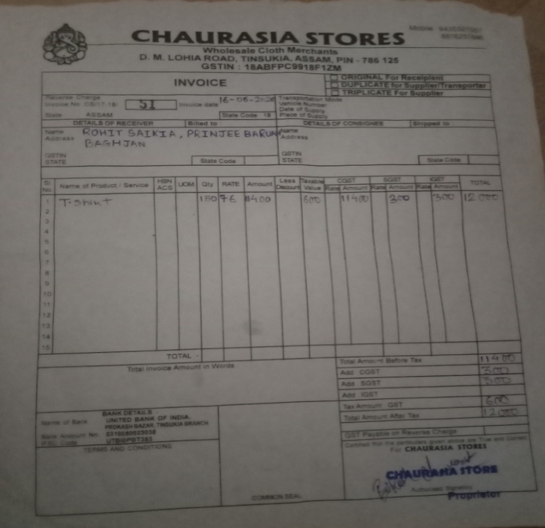 CHAURASIA STORES
Wholesale Cloth Merchants
D. M. LOHIA ROAD, TINSUKIA, ASSAM, PIN - 786 125
GSTIN : 18ABFPC9918F1ZM
INVOICE
ORIGINAL For Receipient
DUPLICATE for Supplier/Transporter
TRIPLICATE For Supplier
Reverse Charge
Invoice No. 51
Invoice date
State ASSAM State Code 18
Transportation Mode
Vehicle Number
Date of Supply
Place of Supply
DETAILS OF RECEIVER Billed to
DETAILS OF CONSIGNEE Shipped to
Name ROHIT SAIKIA, PRINJEE BARUAH
Address BAGHJAN
Name
Address
GSTIN
STATE State Code
GSTIN
STATE State Code
Sr. No. Name of Product / Service HSN ACS UOM Qty RATE Amount Less Discount Taxable Value CGST SGST IGST TOTAL
Rate Amount Rate Amount Rate Amount
1 T-shirt 150 76 11400 600 11400 300 300 12000
2
3
4
5
6
7
8
9
10
11
12
13
14
15
TOTAL -
Total Invoice Amount in Words
Total Amount Before Tax 11400
Add CGST 300
Add SGST 300
Add IGST
Tax Amount GST 600
Total Amount After Tax 12000
GST Payable on Reverse Charge
BANK DETAILS
Name of Bank UNITED BANK OF INDIA,
PROKASH BAZAR, TINSUKIA BRANCH
Bank Account No.
TERMS AND CONDITIONS
COMMON SEAL
Certified that the particulars given above are True and correct
For CHAURASIA STORES
CHAURASIA STORE
Authorised Signatory
Proprietor